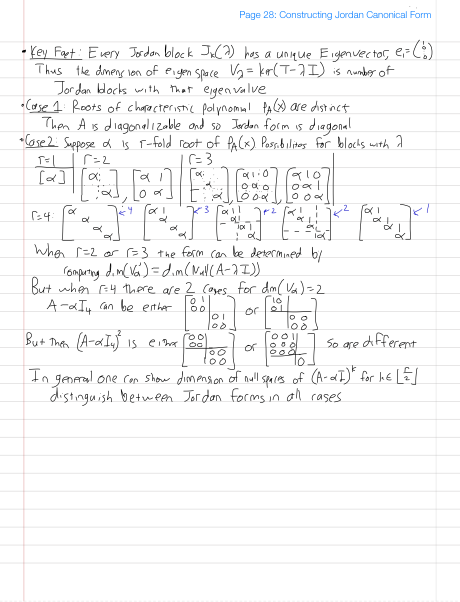 Page 28: Constructing Jordan Canonical Form
• Key Fact: Every Jordan block Jₖ(λ) has a unique Eigenvector, e₁ = (1 0 0)
Thus the dimension of eigenspace V_λ = ker(T-λI) is number of
Jordan blocks with that eigenvalue
• Case 1: Roots of characteristic polynomial p_A(x) are distinct
Then A is diagonalizable and so Jordan form is diagonal
• Case 2: Suppose α is r-fold root of p_A(x) Possibilities for blocks with λ
r=1 | r=2 | r=3
[α] [α α], [α 1 0 α] [α α α] [α 1 0 0 α 0 0 0 α] [α 1 0 0 α 1 0 0 α]
r=4: [α α α α] ← 4 [α 1 α α α] ← 3 [α 1 α α 1 α] ← 2 [α 1 α 1 α α] ← 2 [α 1 α 1 α 1 α] ← 1
When r=2 or r=3 the form can be determined by
computing dim(V_α) = dim(Null(A-λI))
But when r=4 there are 2 cases for dim(V_α)=2
A-αI₄ can be either [0 1 0 0 0 1 0 0] or
But then (A-αI₄)² is either [0 0 0 0 0 0 0 0] or [0 0 1 0 0 0 0 0 0 0] so are different
In general one can show dimension of null spaces of (A-αI)^k for k∈⌊r/2⌋
distinguish between Jordan forms in all cases